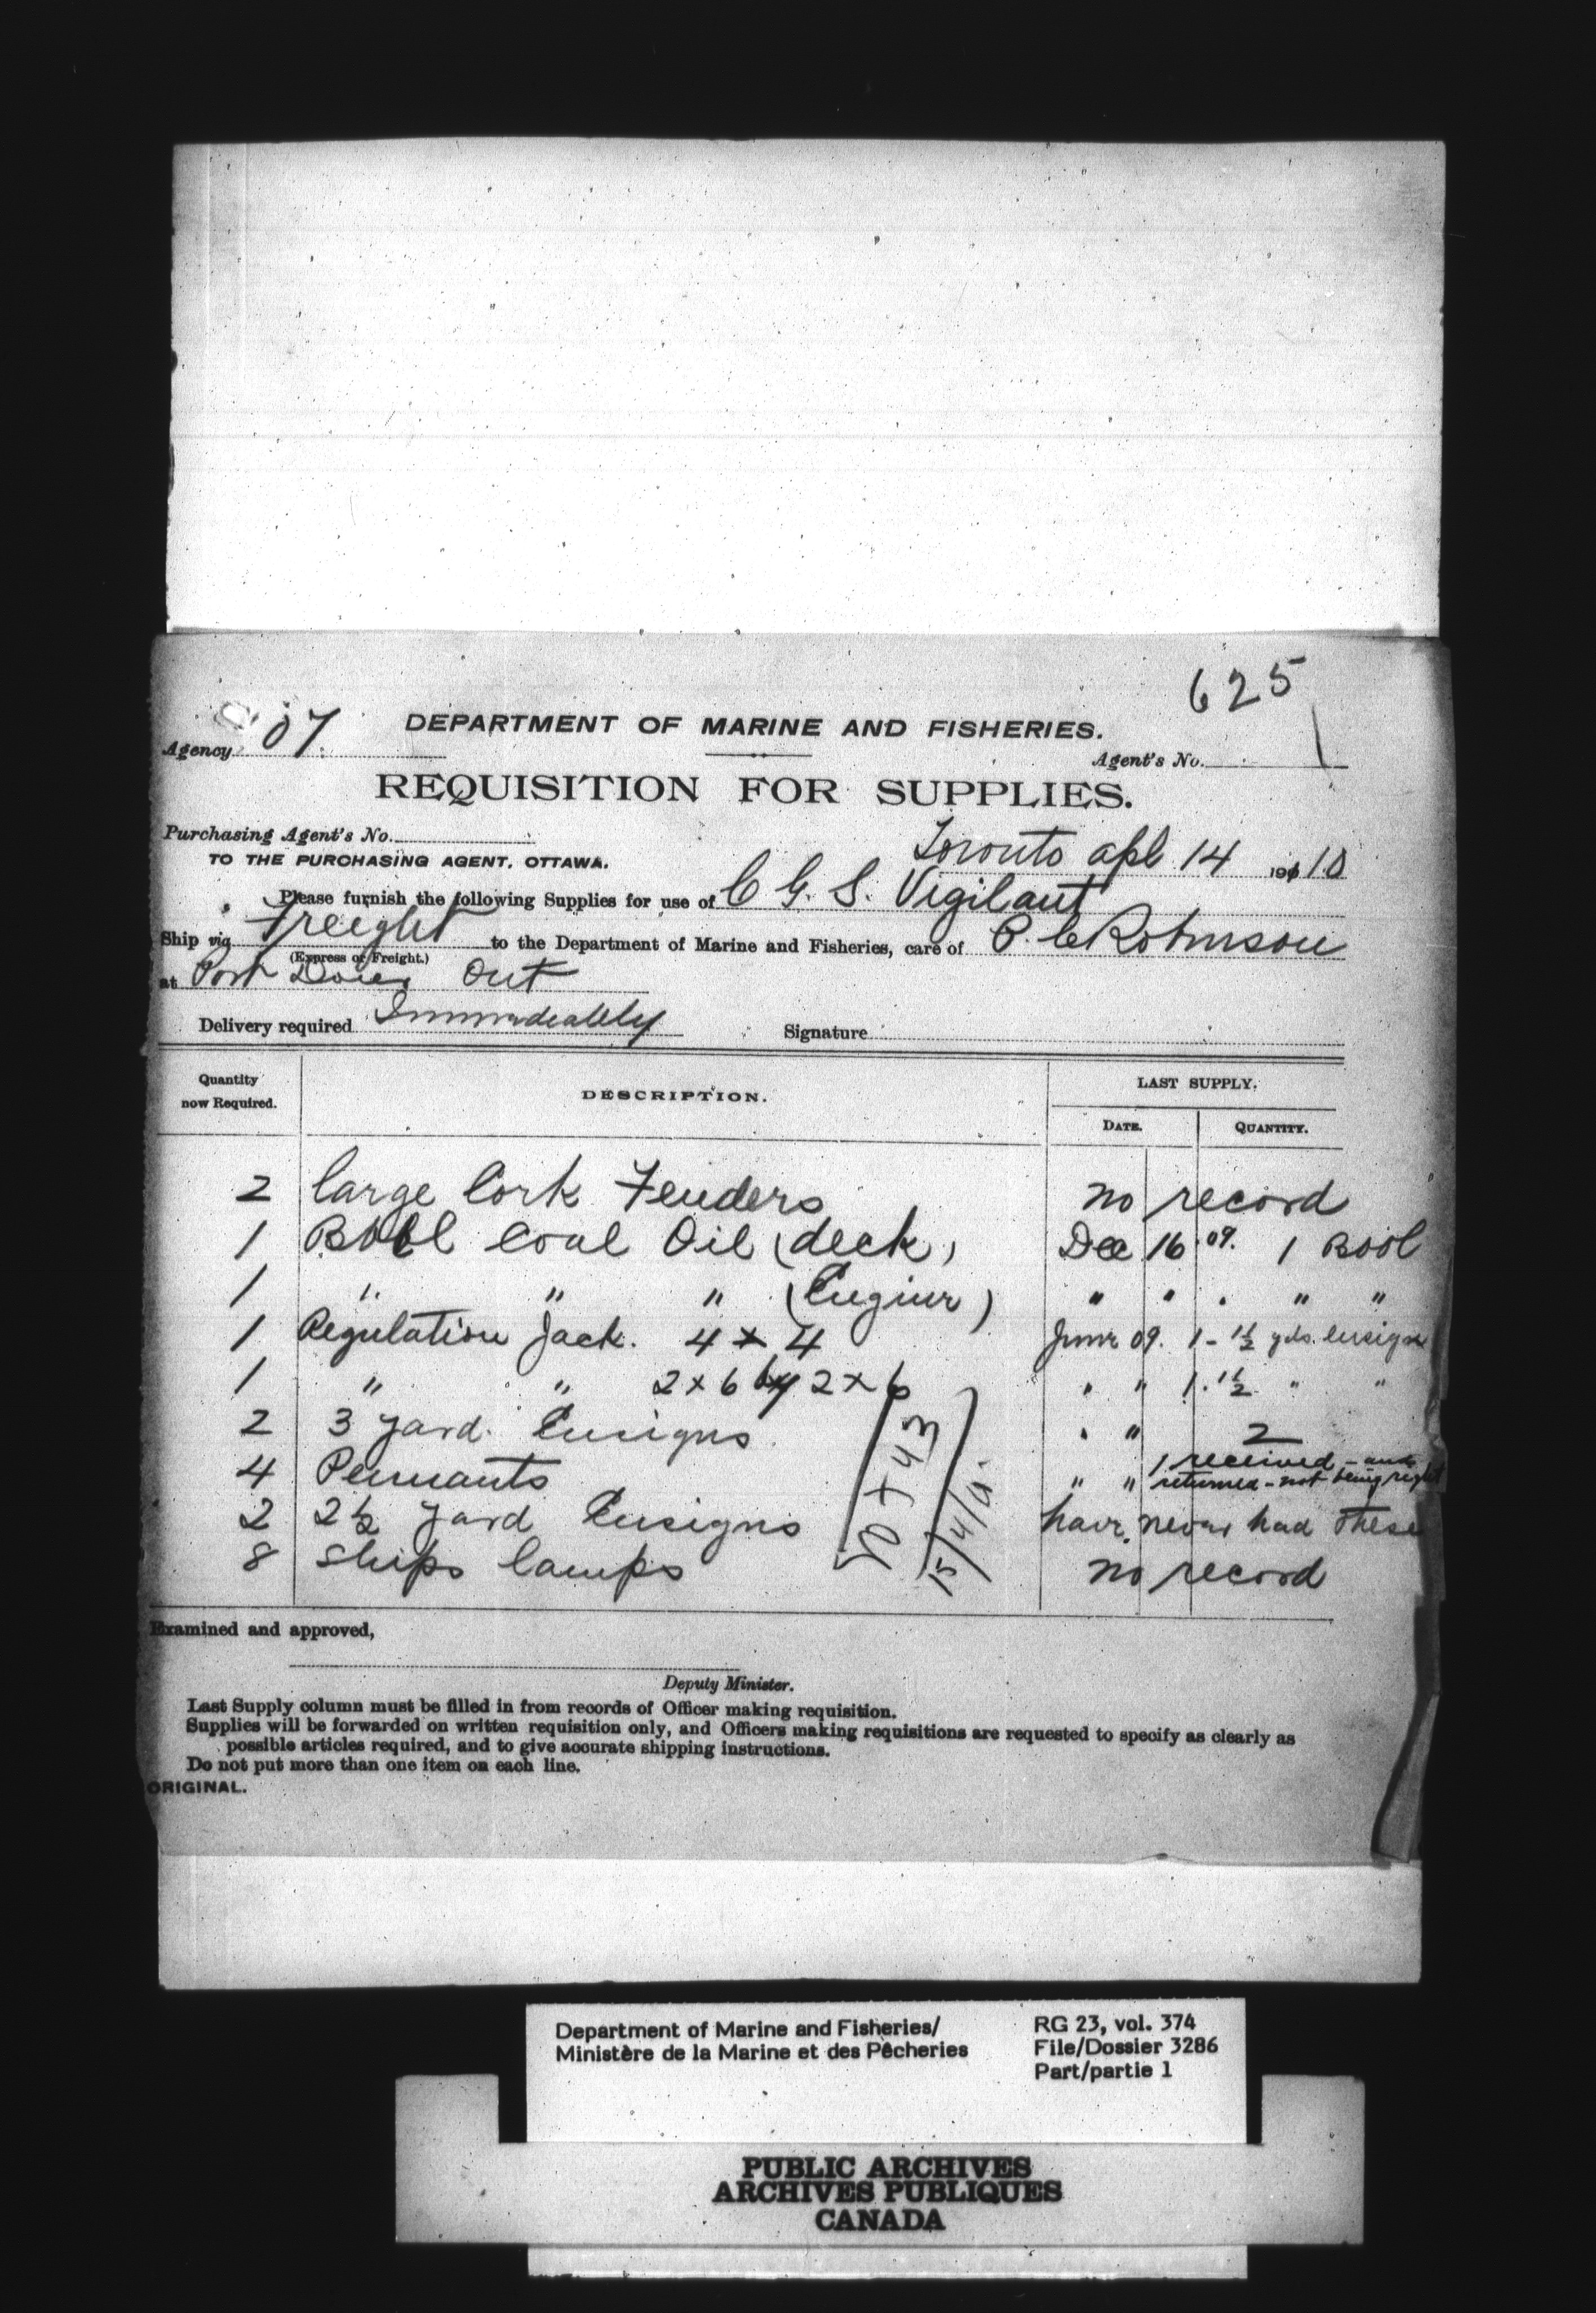 625
07.
DEPARTMENT OF MARINE AND FISHERIES.
Agency
Agent's No. 1
REQUISITION FOR SUPPLIES.
Purchasing Agent's No.
Toronto apl 14 19010
TO THE PURCHASING AGENT, OTTAWA.
Please furnish the following Supplies for use of C. G. S. Vigilant
Ship via Freight to the Department of Marine and Fisheries, care of P. C. Robinson
(Express or Freight.)
at Port Dover Ont
Delivery required Immadeatlely Signature
Quantity now Required. DESCRIPTION. LAST SUPPLY.
DATE. QUANTITY.
2 large Cork Fenders no record
1 Bbl Coal Oil (deck) Dec 16 09. 1 Bbl
1 " " " (Engine) " " " " "
1 Regulation Jack. 4 x 4 June 09. 1 - 1 1/2 yds. Ensign
1 " " 2 x 6 by 2 x 6 " " 1. 1 1/2 " "
2 3 yard Ensigns " " 2
4 Pennants " " 1 received - and returned - not being right
2 2 1/2 yard Ensigns have never had these
8 Ships lamps no record
15/4/
Examined and approved,
Deputy Minister.
Last Supply column must be filled in from records of Officer making requisition.
Supplies will be forwarded on written requisition only, and Officers making requisitions are requested to specify as clearly as
possible articles required, and to give accurate shipping instructions.
Do not put more than one item on each line.
ORIGINAL.
Department of Marine and Fisheries/ RG 23, vol. 374
Ministère de la Marine et des Pêcheries File/Dossier 3286
Part/partie 1
PUBLIC ARCHIVES
ARCHIVES PUBLIQUES
CANADA